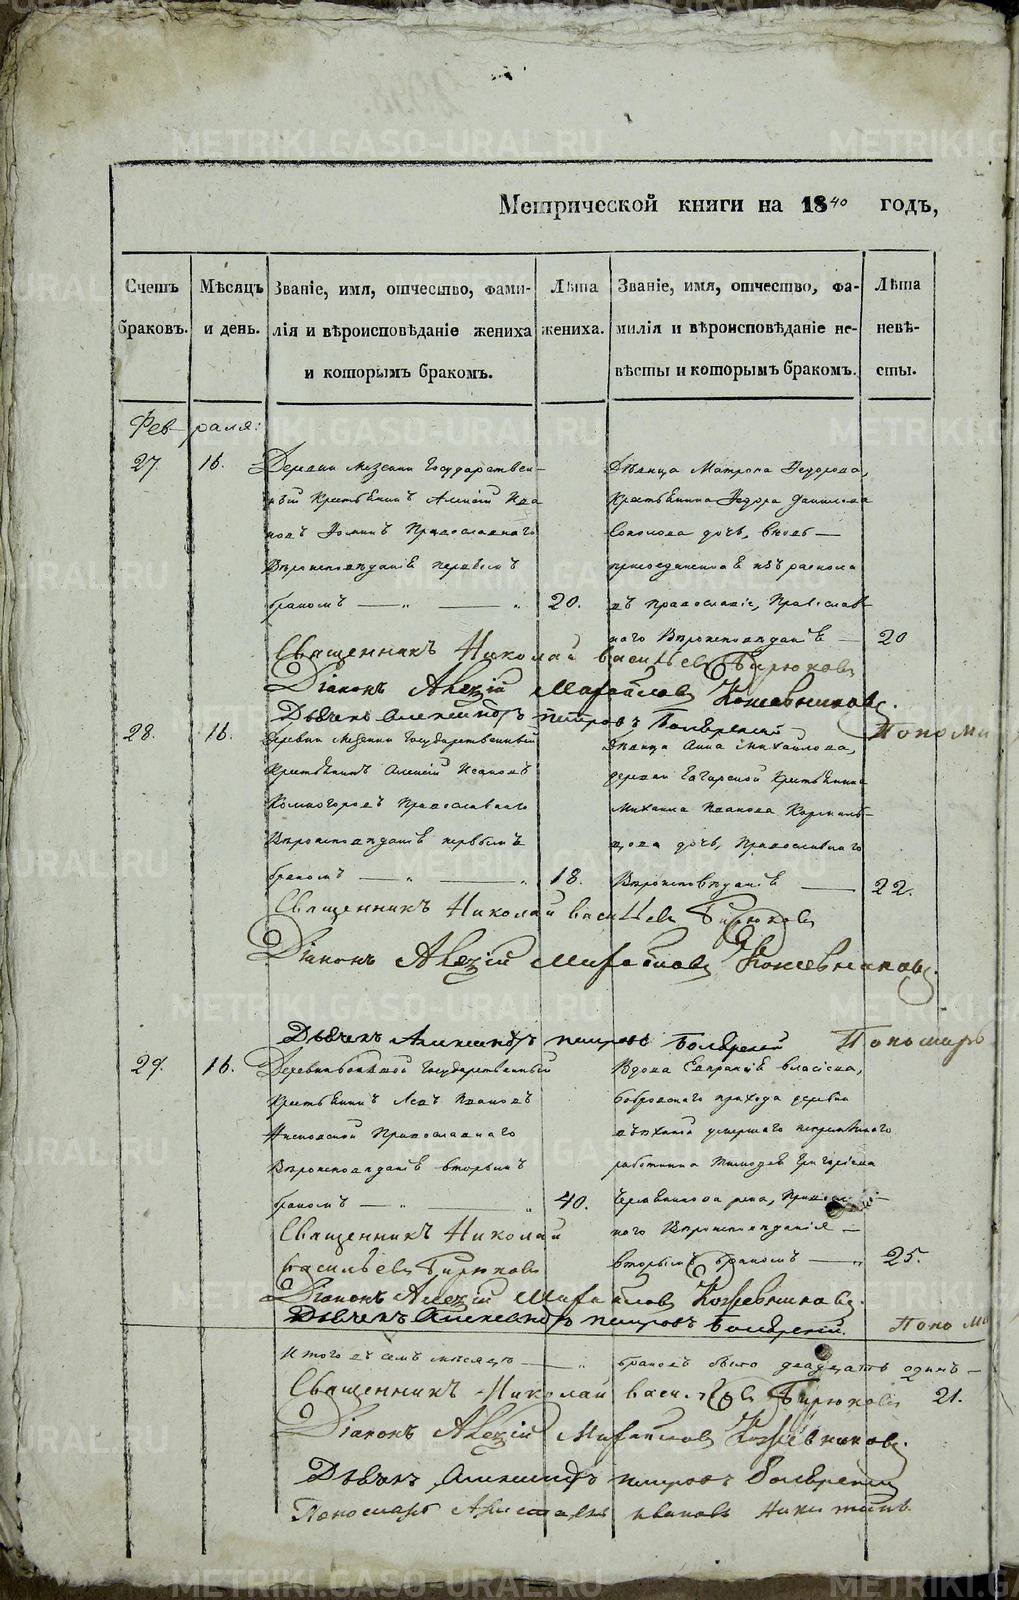 Метрической книги на 1840 годъ,
Счетъ браковъ.
Мѣсяцъ и день.
Званіе, имя, отчество, фами-
лія и вѣроисповѣданіе жениха
и которымъ бракомъ.
Лѣта
жениха.
Званіе, имя, отчество, фа-
милія и вѣроисповѣданіе не-
вѣсты и которымъ бракомъ.
Лѣта
невѣ-
сты.
Февраля:
27. 16.
Деревни Мезенки Государствен-
ный Крестьянинъ Алексѣй Ива
новъ Православнаго
Вѣроисповѣданiя первымъ
бракомъ 20.
Дѣвица Матрона Федорова,
Крестьянина Федора Данилова
Соколова дочь, вновь
присоединенная изъ раскола
въ православіе, Православ-
наго Вѣроисповѣданія 20
Священникъ Николай Васильевъ Бирюковъ
Діаконъ Алексій Михайловъ Кожевниковъ.
Дьячекъ Александръ Петровъ
Пономарь
28. 16.
Деревни Мезенки Государственный
Крестьянинъ Алексѣй Ивановъ
Комногоровъ Православнаго
Вѣроисповѣданія первымъ
бракомъ 18.
Дѣвица Анна Михайлова,
деревни Гагарской Крестьянина
Михаила Иванова Кормиль-
цова дочь, Православнаго
Вѣроисповѣданія 22.
Священникъ Николай Васильевъ Бирюковъ
Діаконъ Алексій Михайловъ Кожевниковъ.
Дьячекъ Александръ Петровъ
Пономарь
29. 16.
Государственный
Крестьянинъ Ивановъ
Православнаго
Вѣроисповѣданія вторымъ
бракомъ 40.
Вдова Евпраксія Власіева,
Бобровскаго прихода деревни
умершаго непремѣннаго
работника Григорьева
жена, Православ-
наго Вѣроисповѣданія
вторымъ бракомъ 25.
Священникъ Николай
Васильевъ Бирюковъ
Діаконъ Алексій Михайловъ Кожевниковъ.
Дьячекъ Александръ Петровъ
Итого въ семъ мѣсяцѣ браковъ было двадцать одинъ
21.
Священникъ Николай Васильевъ Бирюковъ
Діаконъ Алексій Михайловъ Кожевниковъ.
Дьячекъ Александръ Петровъ
Пономарь Ивановъ Никитинъ
METRIKI.GASO-URAL.RU